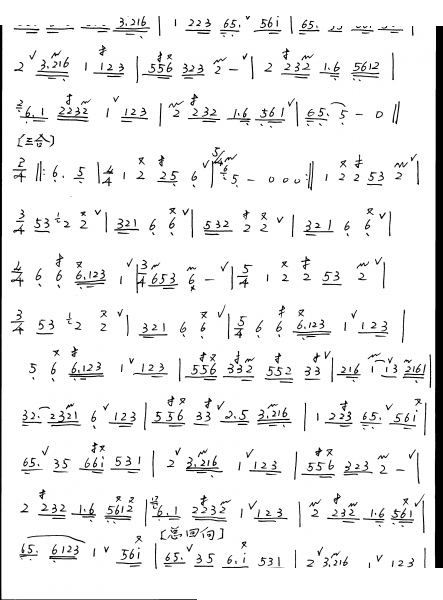 3.216 | 1 223 65. 56i | 65.
2 3.216 1 123 | 556 323 2 - | 2 232 1.6 5612 |
6.1 2232 1 123 | 2 232 1.6 561 | 65. 5 - 0 ||
[三合]
2/4 ||: 6. 5 | 4/4 1 2 25 6 | 5/4 5 - 0 0 0 :|| 1 2 2 53 2 |
3/4 53 2 2 | 321 6 6 | 532 2 2 | 321 6 6 |
4/4 6 6 6.123 1 | 3/4 653 6 - | 5/4 1 2 2 53 2 |
3/4 53 2 2 | 321 6 6 | 5/4 6 6 6.123 1 123 |
5 6 6.123 1 123 | 556 332 552 33 | 216 1 13 2161 |
32. 2321 6 123 | 556 33 2.5 3.216 | 1 223 65. 56i |
65. 35 66i 531 | 2 3.216 1 123 | 556 323 2 - |
2 232 1.6 5612 | 6.1 2232 1 123 | 2 232 1.6 561 |
[总回向]
65. 6123 1 56i | 65. 35 6.i 531 | 2 3.216 1 123